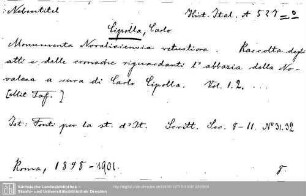 Nebentitel
Hist. Ital. A 527=2
Cipolla, Carlo
Monumenta Novaliciensia vetustiora. Raccolta degli
atti e delle cronache riguardanti l'abbazia della No-
valesa a cura di Carlo Cipolla. Vol. 1.2. ...
[Mit Taf.]
Ist: Fonti per la st. d'It. Scritt. Sec. 8-11. N° 31.32
Roma, 1898-1901. 8